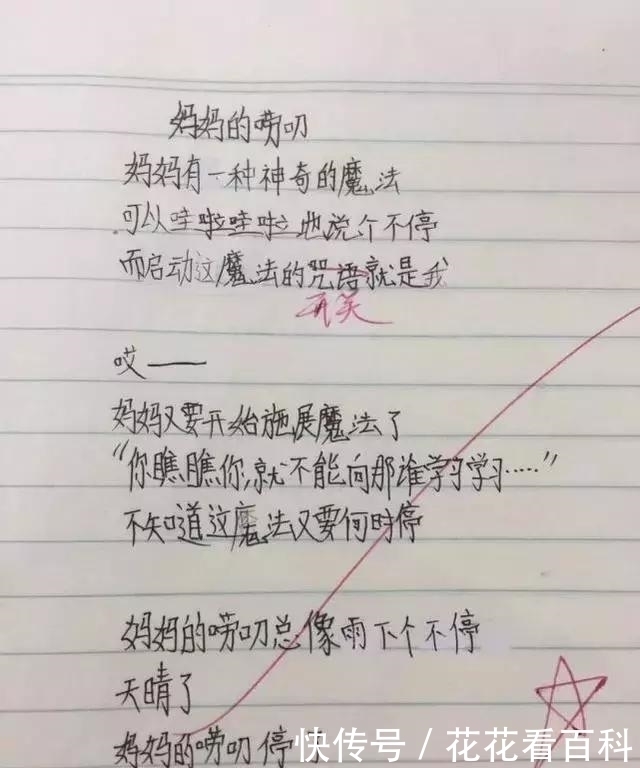 妈妈的唠叨
妈妈有一种神奇的魔法
可以哇啦哇啦地说个不停
而启动这魔法的咒语就是我
哎——
妈妈又要开始施展魔法了
“你瞧瞧你,就不能向那谁学习学习……”
不知道这魔法又要何时停
妈妈的唠叨总像雨下个不停
天晴了
妈妈的唠叨停
快传号/花花看百科